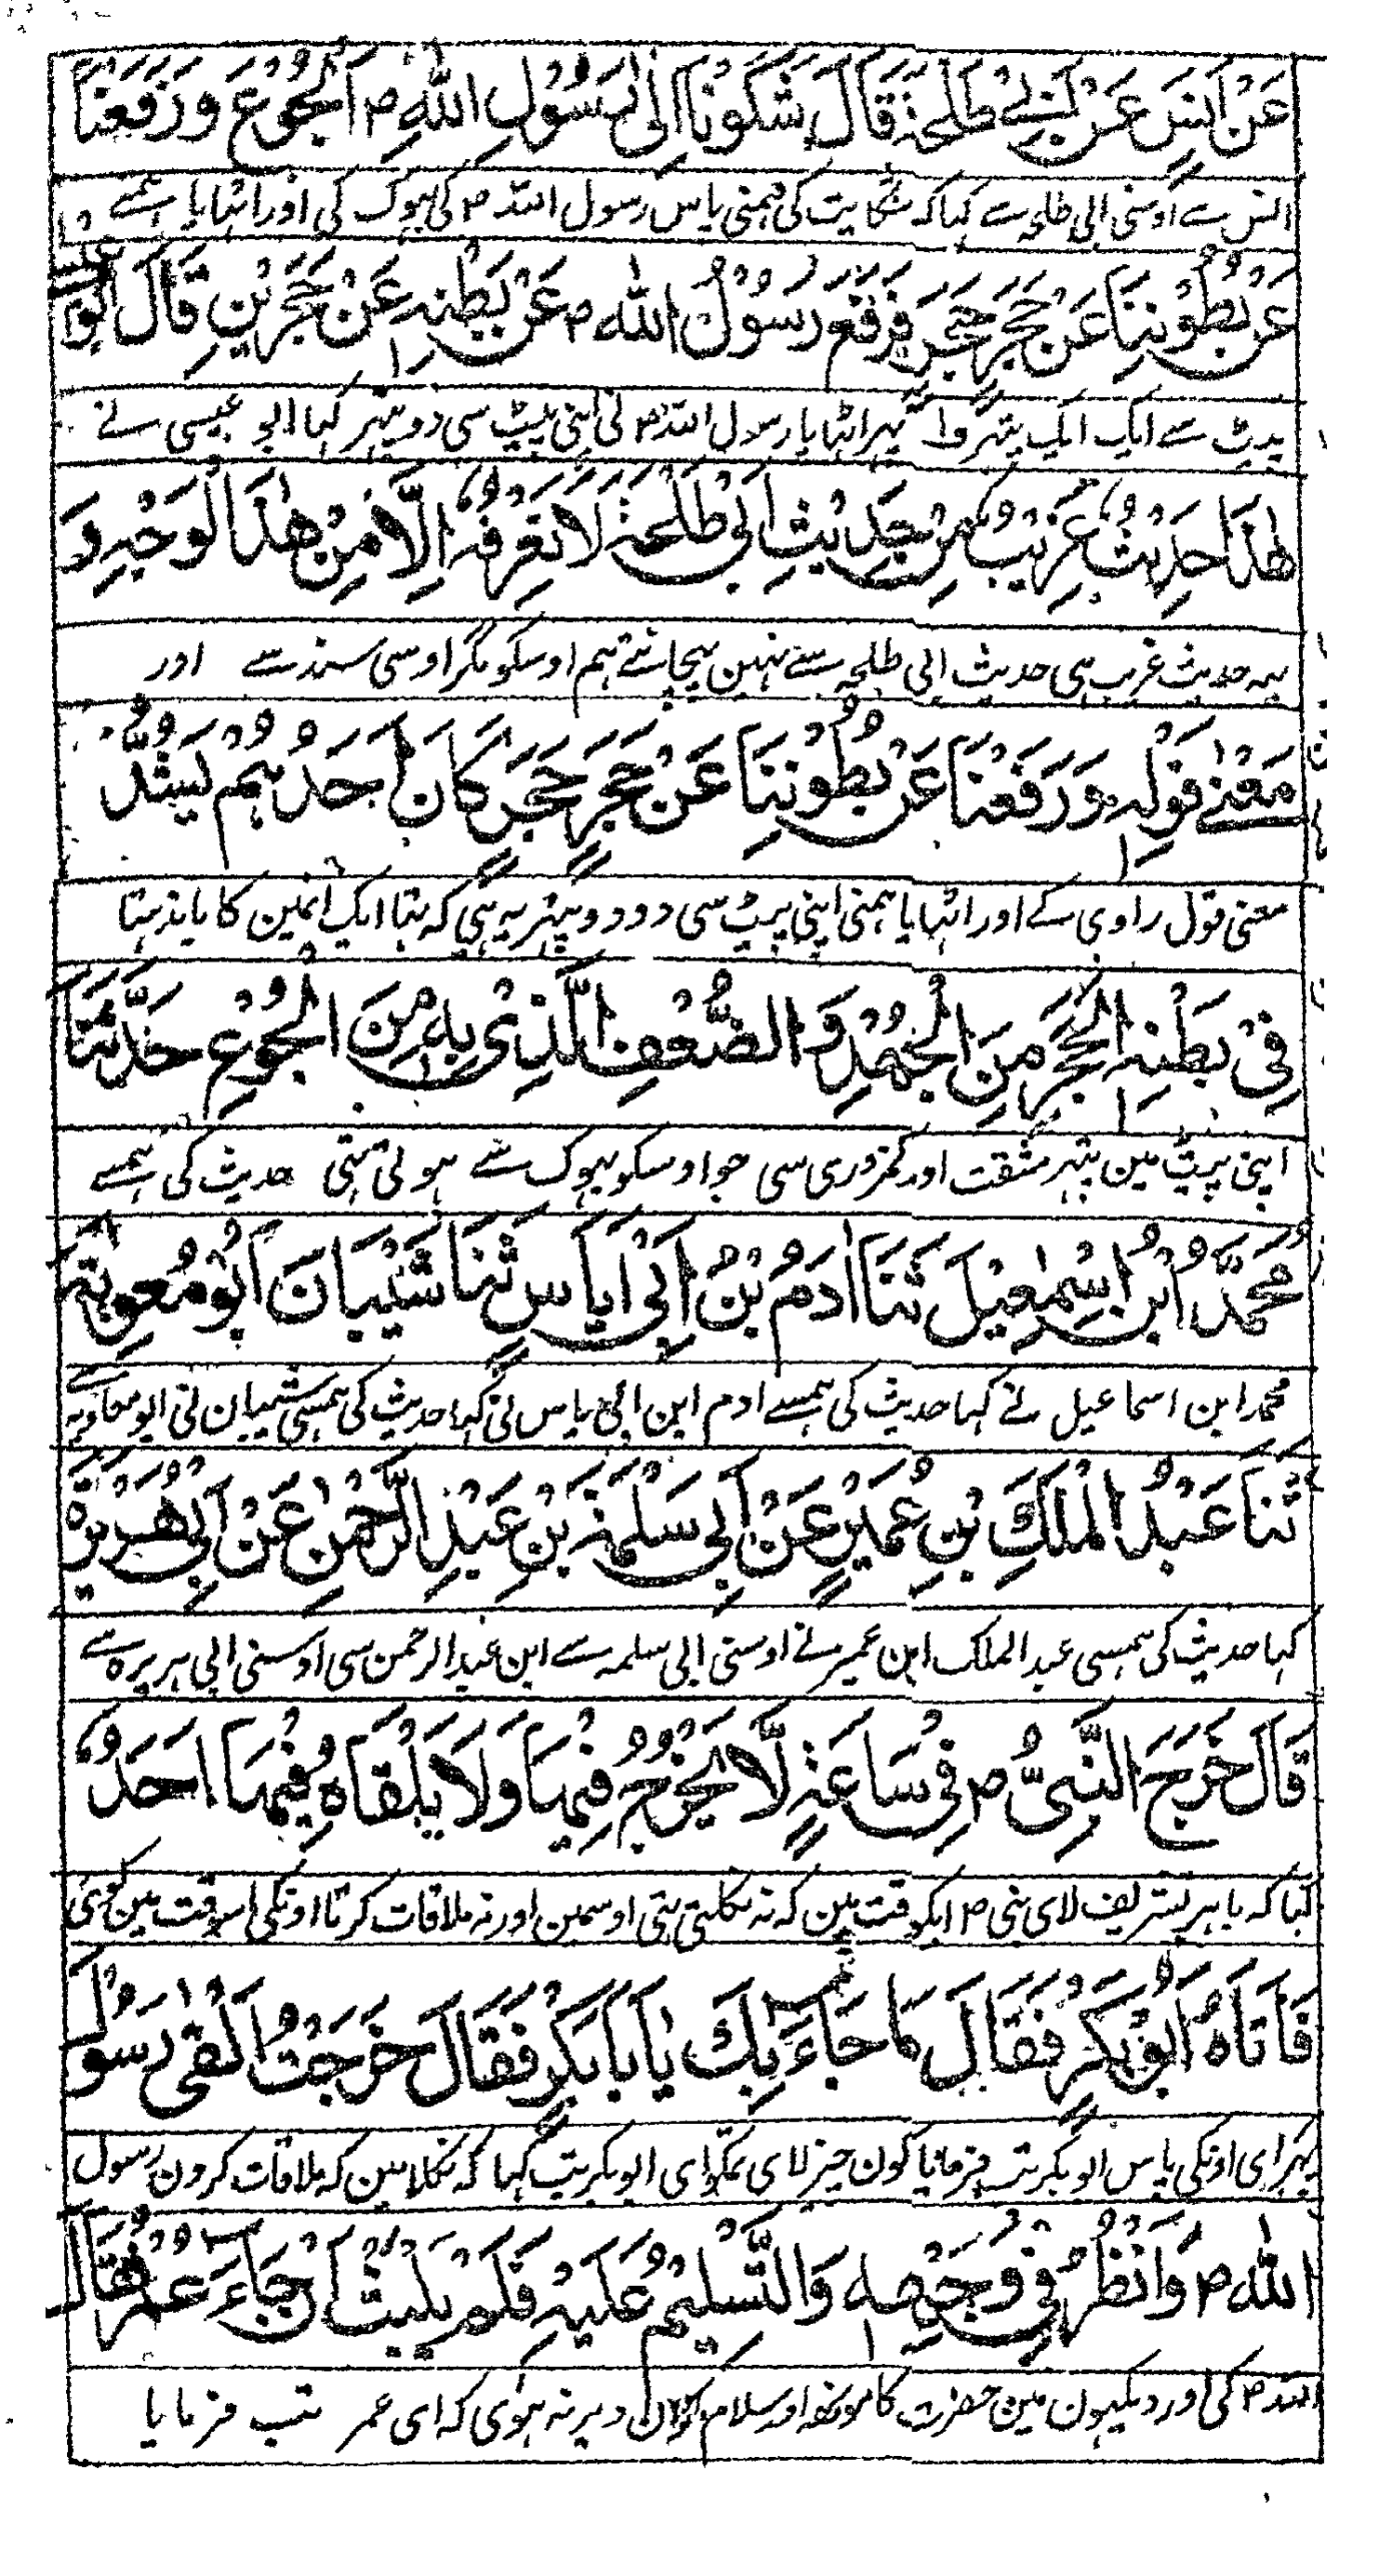 عَنْ اَنَسٍ عَنْ اَبِيْ طَلْحَةَ قَالَ شَكَوْنَا اِلٰى رَسُوْلِ اللّٰهِ ۘ اَلْجُوْعَ وَرَفَعْنَا
انس سے اوسنی ابی طلحہ سے کہا کہ شکایت کی ہمنی پاس رسول اللہ ۘ کی بہوک کی اور اٹہایا ہمنے
عَنْ بُطُوْنِنَا عَنْ حَجَرٍ حَجَرٍ فَرَفَعَ رَسُوْلُ اللّٰهِ ۘ عَنْ بَطْنِهٖ عَنْ حَجَرَيْنِ قَالَ اَبُوْ عِيْسٰى
پیٹ سے ایک ایک پتہر پہر اٹہایا رسول اللہ ۘ نی اپنی پیٹ سی دو پتہر کہا ابو عیسی نے
هٰذَا حَدِيْثٌ غَرِيْبٌ مِنْ حَدِيْثِ اَبِيْ طَلْحَةَ لَا نَعْرِفُهٗ اِلَّا مِنْ هٰذَا لْوَجْهِ وَ
یہہ حدیث غریب ہی حدیث ابی طلحہ سے نہین پہچانتے ہم اوسکو مگر اوسی سند سے اور
مَعْنٰى قَوْلِهٖ وَرَفَعْنَا عَنْ بُطُوْنِنَا عَنْ حَجَرٍ حَجَرٍ كَانَ اَحَدُهُمْ يَشُدُّ
معنی قول راوی کے اور اٹہایا ہمنی اپنی پیٹ سی دو دو پتہر یہ ہی کہ تہا ایک انمین کا باندہتا
فِيْ بَطْنِهِ الْحَجَرَ مِنَ الْجُهْدِ وَ الضُّعْفِ الَّذِىْ بِهٖ مِنَ الْجُوْعِ حَدَّثَنَا
اپنی پیٹ مین پتہر مشقت اور کمزوری سی جو اوسکو بہوک سے ہوتی تہی حدیث کی ہمسے
مُحَمَّدُ ابْنُ اِسْمٰعِيْلَ ثَنَا اٰدَمُ بْنُ اَبِيْ اَيَاسٍ ثَنَا شَيْبَانُ اَبُوْ مُعٰوِيَةَ
محمد ابن اسماعیل نے کہا حدیث کی ہمسے ادم ابن ابی یاس نی کہا حدیث کی ہمسی شیبان نی ابو معاویہ نے
ثَنَا عَبْدُ الْمَلِكِ بْنِ عُمَيْرٍ عَنْ اَبِيْ سَلْمَةَ بْنِ عَبْدِ الرَّحْمٰنِ عَنْ اَبِيْ هُرَيْرَةَ
کہا حدیث کی ہمسی عبد الملک ابن عمیر نے اوسنی ابی سلمہ سے ابن عبد الرحمن سی اوسنی ابی ہریرہ سے
قَالَ خَرَجَ النَّبِىُّ ۘ فِيْ سَاعَةٍ لَّا يَخْرُجُ فِيْهَا وَلَا يَلْقَاهُ فِيْهَا اَحَدٌ
کہا کہ باہر تشریف لای نبی ۘ ایکوقت مین کہ نہ نکلتی تہی اوسمین اور نہ ملاقات کرتا اونکی اسوقت مین کوئی
فَاَتَاهُ اَبُوْبَكْرٍ فَقَالَ مَا جَاءَ بِكَ يٰا اَبَا بَكْرٍ فَقَالَ خَرَجْتُ اَلْقٰى رَسُوْلَ
پہر ای اونکی پاس ابو بکر تب فرمایا کون چیز لای تمکو ای ابوبکر تب کہا کہ نکلا مین کہ ملاقات کرون رسول
اللّٰهِ ۘ وَاَنْظُرُ فِيْ وَجْهِهٖ وَالتَّسْلِيْمَ عَلَيْهِ فَلَمْ يَلْبَثْ اَنْ جَاءَ عُمَرُ فَقَالَ
اللہ ۘ کی اور دیکہون مین حضرت کا مونہہ اور سلام دیر نہ ہوی کہ ای عمر تب فرمایا